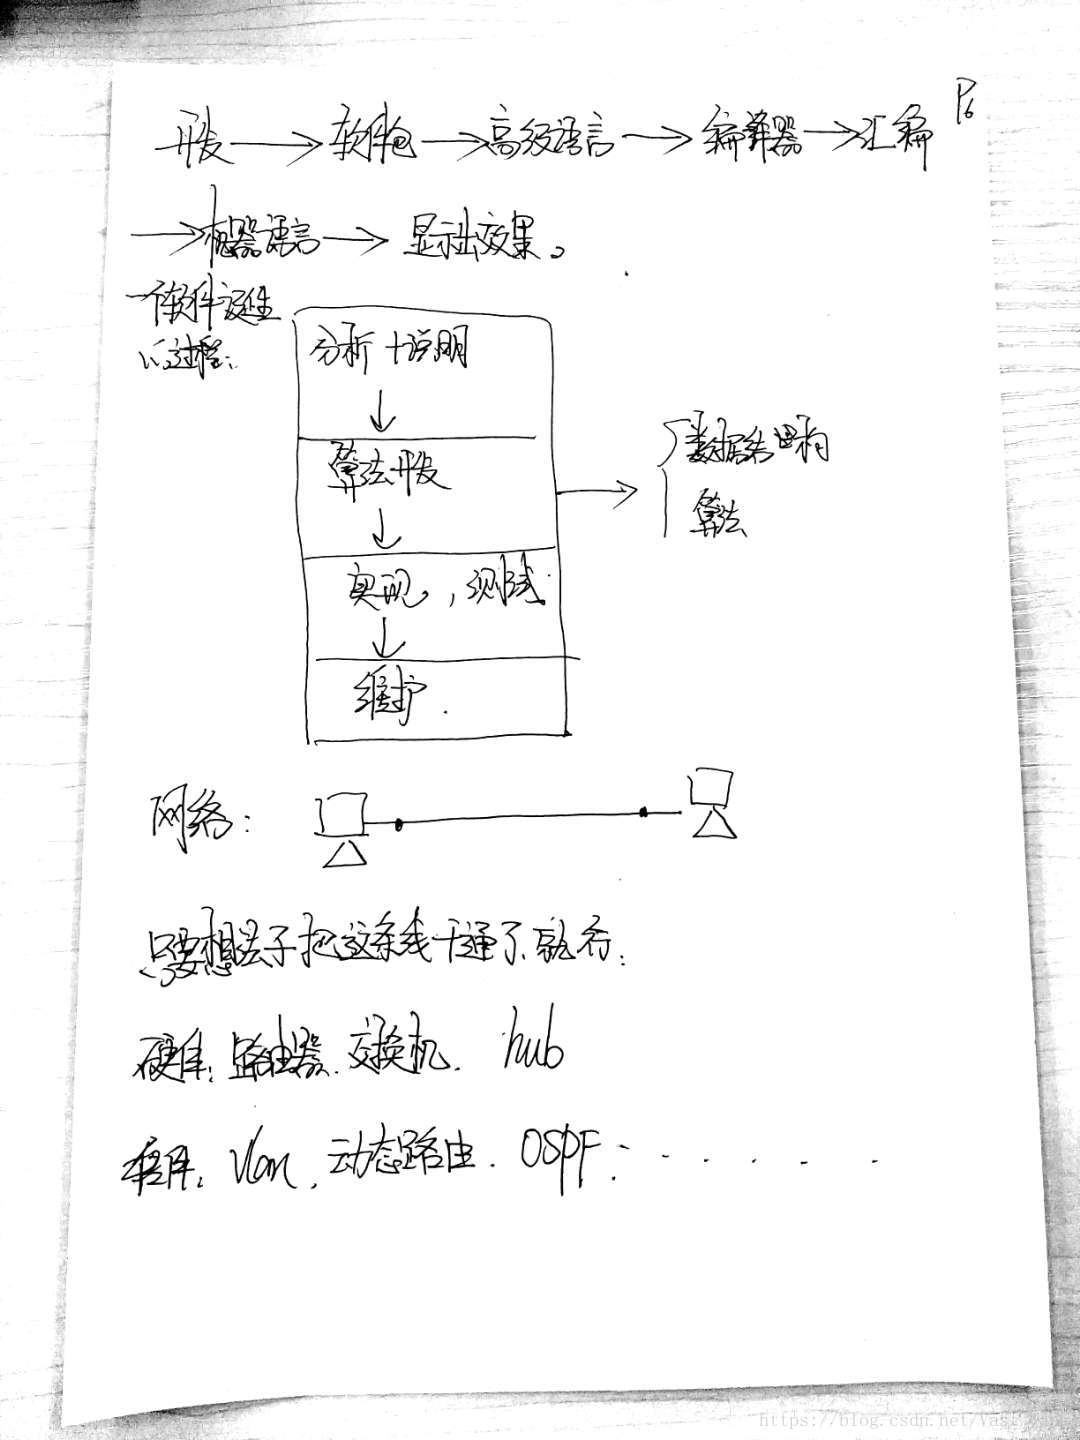 P6
开发 → 软件包 → 高级语言 → 编译器 → 汇编
→ 机器语言 → 显示出效果。
一个软件诞生
过程:
分析+说明
↓
算法开发 →
数据结构
算法
↓
实现,测试
↓
维护.
网络:
只要想法子把这条线干通了就行:
硬件:路由器.交换机. hub
程序: Vlan.动态路由. OSPF.......
https://blog.csdn.net/Vast